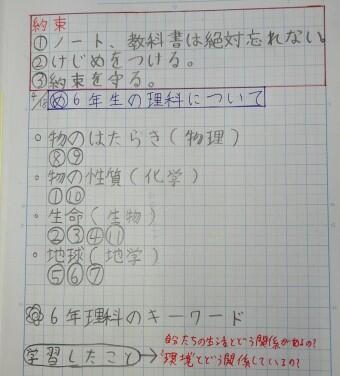 約束
①ノート、教科書は絶対忘れない。
②けじめをつける。
③約束を守る。
め 6年生の理科について
○物のはたらき(物理)
⑧⑨
○物の性質(化学)
①⑩
○生命(生物)
②③④⑪
○地球(地学)
⑤⑥⑦
◎6年理科のキーワード
自分たちの生活とどう関係があるの?
学習したこと→"環境"とどう関係しているの?